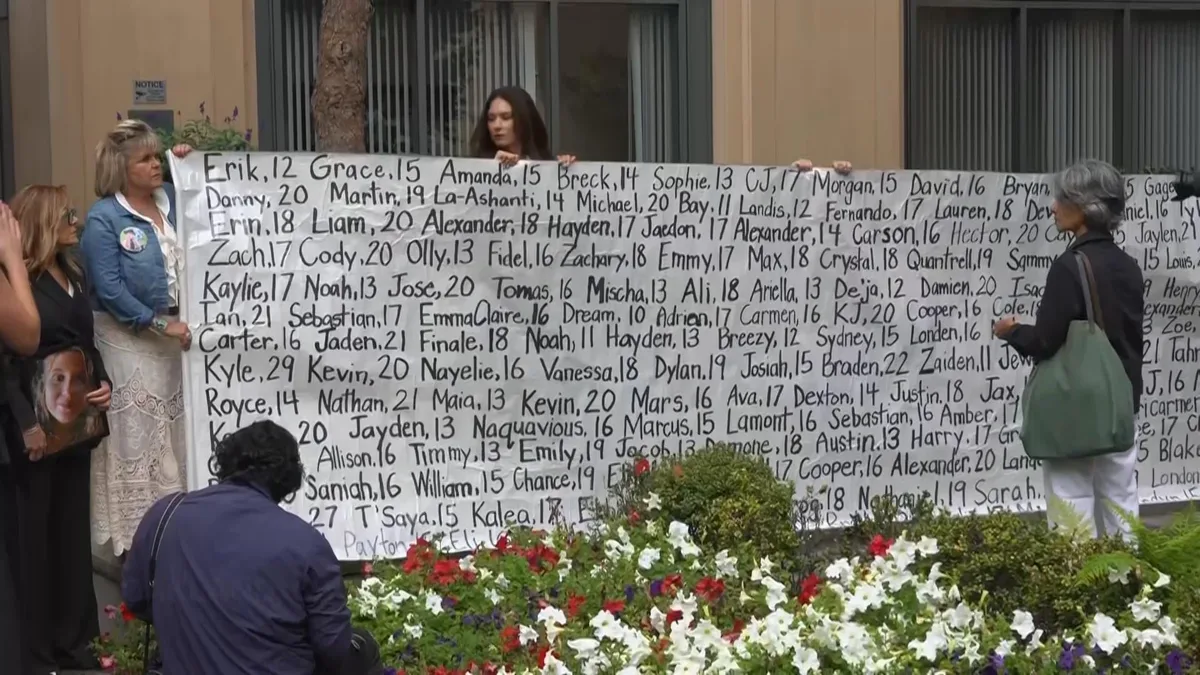 NOTICE
Erik, 12 Grace, 15 Amanda, 15 Breck, 14 Sophie, 13 CJ, 17 Morgan, 15 David, 16 Bryan, 5 Gage
Danny, 20 Martin, 19 La-Ashanti, 14 Michael, 20 Bay, 11 Landis, 12 Fernando, 17 Lauren, 18
Erin, 18 Liam, 20 Alexander, 18 Hayden, 17 Jaedon, 17 Alexander, 14 Carson, 16 Hector, 20 Jaylen, 21
Zach, 17 Cody, 20 Olly, 13 Fidel, 16 Zachary, 18 Emmy, 17 Max, 18 Crystal, 18 Quantrell, 19 Sammy 15 Louis,
Kaylie, 17 Noah, 13 Jose, 20 Tomas, 16 Mischa, 13 Ali, 18 Ariella, 13 Deja, 12 Damien, 20
Ian, 21 Sebastian, 17 EmmaClaire, 16 Dream, 10 Adrien, 17 Carmen, 16 KJ, 20 Cooper, 16 Cole,
Carter, 16 Jaden, 21 Finale, 18 Noah, 11 Hayden, 13 Breezy, 12 Sydney, 15 London, 16 Zoe,
Kyle, 29 Kevin, 20 Nayelie, 16 Vanessa, 18 Dylan, 19 Josiah, 15 Braden, 22 Zaiden, 11
Royce, 14 Nathan, 21 Maia, 13 Kevin, 20 Mars, 16 Ava, 17 Dexton, 14 Justin, 18 Jax, J, 16
20 Jayden, 13 Naquavious, 16 Marcus, 15 Lamont, 16 Sebastian, 16 Amber, 17
Allison, 16 Timmy, 13 Emily, 19 Jacob, 13 18 Austin, 13 Harry, 17
Saniah, 16 William, 15 Chance, 19 17 Cooper, 16 Alexander, 20 London
27 T'Saya, 15 Kalea, 18 Nathaniel, 19 Sarah,
Payton